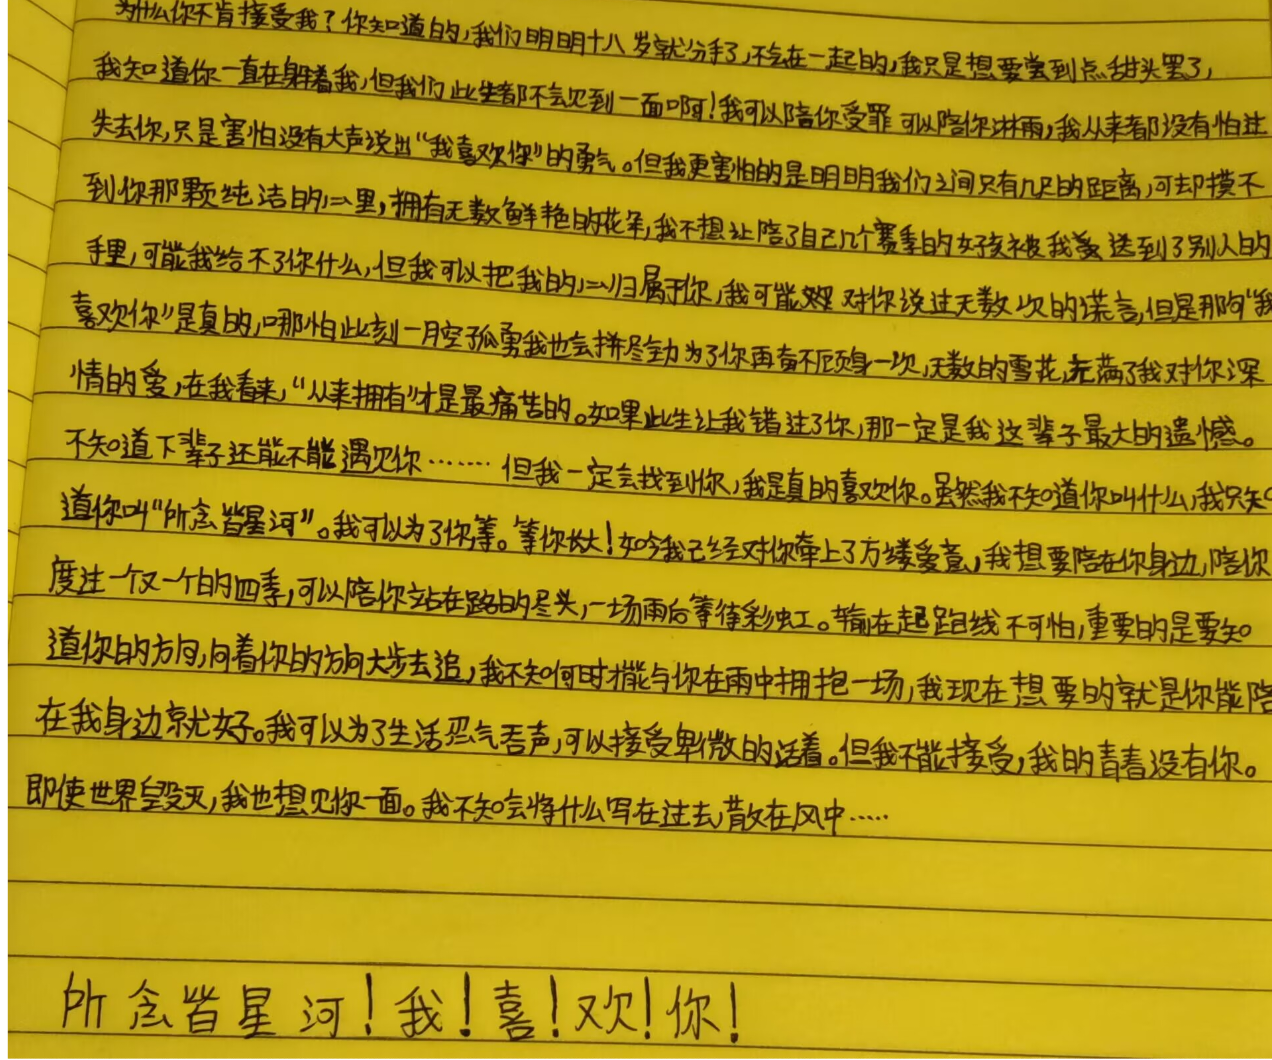 为什么你不肯接受我？你知道的，我们明明十八岁就分手了，不会在一起的，我只是想要尝到点甜头罢了，
我知道你一直在躲着我，但我们此生都不会见到一面啊！我可以陪你受罪 可以陪你淋雨，我从来都没有怕过
失去你，只是害怕没有大声说出“我喜欢你”的勇气。但我更害怕的是明明我们之间只有几尺的距离，可却摸不
到你那颗纯洁的心里，拥有无数鲜艳的花朵，我不想让陪了自己几个赛季的女孩被我 送到了别人的
手里，可能我给不了你什么，但我可以把我的心归属于你，我可能 对你说过无数次的谎言，但是那句“我
喜欢你”是真的，哪怕此刻一月空孤勇我也会拼尽全力为了你再奋不顾身一次，无数的雪花，充满了我对你深
情的爱，在我看来，“从来拥有”才是最痛苦的。如果此生让我错过了你，那一定是我这辈子最大的遗憾。
不知道下辈子还能不能遇见你……… 但我一定会找到你，我是真的喜欢你。虽然我不知道你叫什么，我只知
道你叫“所念皆星河”。我可以为了你等。等你长大！如今我已经对你牵上了万缕爱意，我想要陪在你身边，陪你
度过一个又一个的四季，可以陪你站在路的尽头，一场雨后等待彩虹。输在起跑线不可怕，重要的是要知
道你的方向，向着你的方向大步去追，我不知何时才能与你在雨中拥抱一场，我现在想要的就是你能陪
在我身边就好。我可以为了生活忍气吞声，可以接受卑微的活着。但我不能接受，我的青春没有你。
即使世界毁灭，我也想见你一面。我不知会将什么写在过去，散在风中……
所念皆星河！我！喜！欢！你！